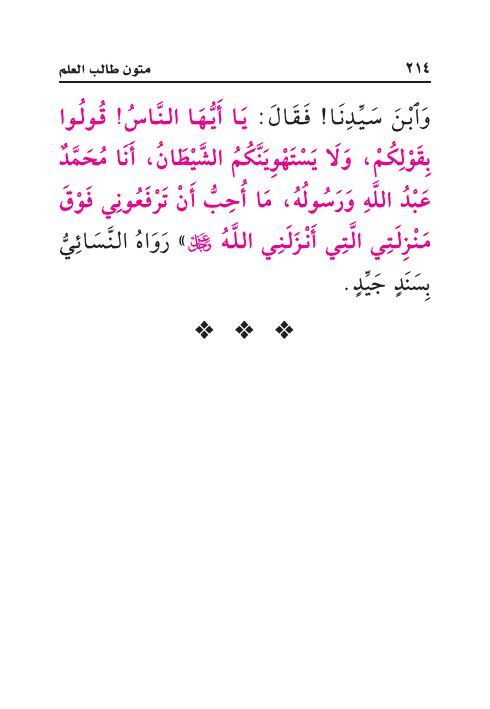 ٢١٤ متون طالب العلم
وَٱبْنَ سَيِّدِنَا! فَقَالَ: يَا أَيُّهَا النَّاسُ! قُولُوا
بِقَوْلِكُمْ، وَلَا يَسْتَهْوِيَنَّكُمُ الشَّيْطَانُ، أَنَا مُحَمَّدٌ
عَبْدُ اللَّهِ وَرَسُولُهُ، مَا أُحِبُّ أَنْ تَرْفَعُونِي فَوْقَ
مَنْزِلَتِي الَّتِي أَنْزَلَنِي اللَّهُ ﷿» رَوَاهُ النَّسَائِيُّ
بِسَنَدٍ جَيِّدٍ.